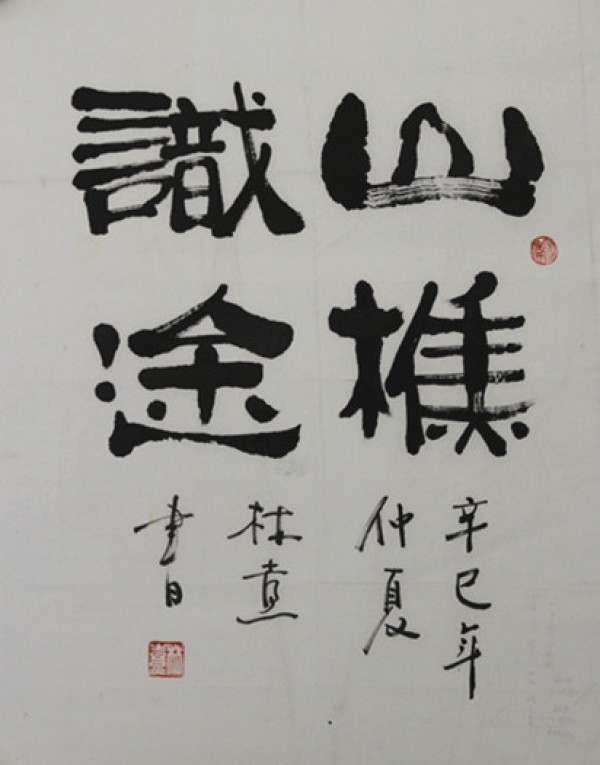 山樵
識途
辛巳年
仲夏
林
書